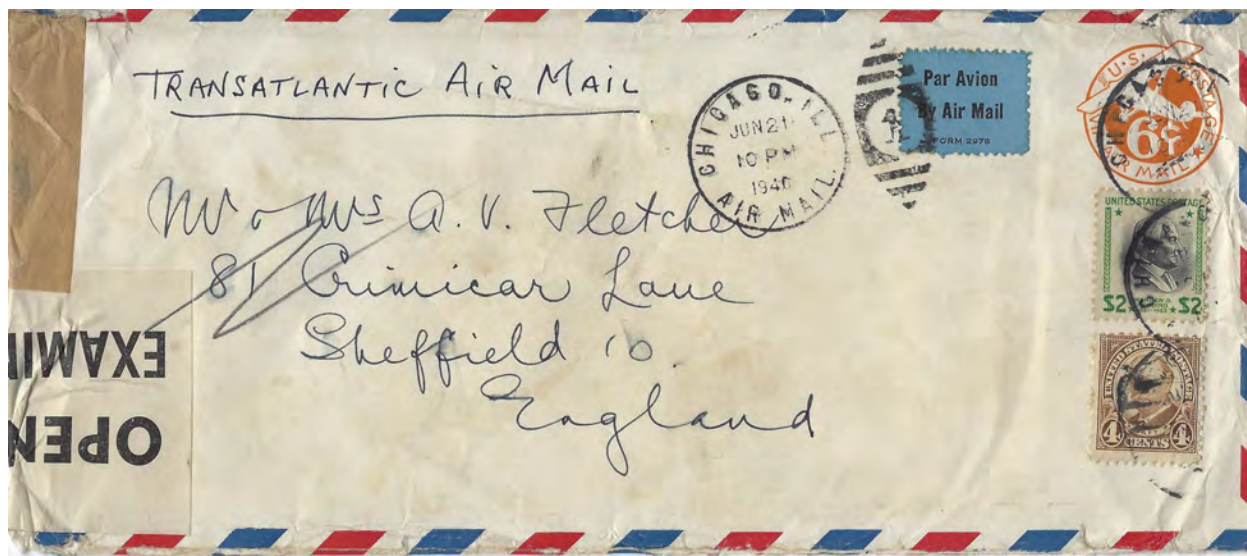 TRANSATLANTIC AIR MAIL
CHICAGO, ILL.
JUN 21
10 PM
1940
AIR MAIL
Par Avion
By Air Mail
FORM 2978
U.S. POSTAGE
6¢
AIR MAIL
UNITED STATES POSTAGE
$2 $2
UNITED STATES POSTAGE
4 CENTS 4
Mr & Mrs A. V. Fletcher
81 Crimicar Lane
Sheffield 10.
England
OPEN
EXAMIN